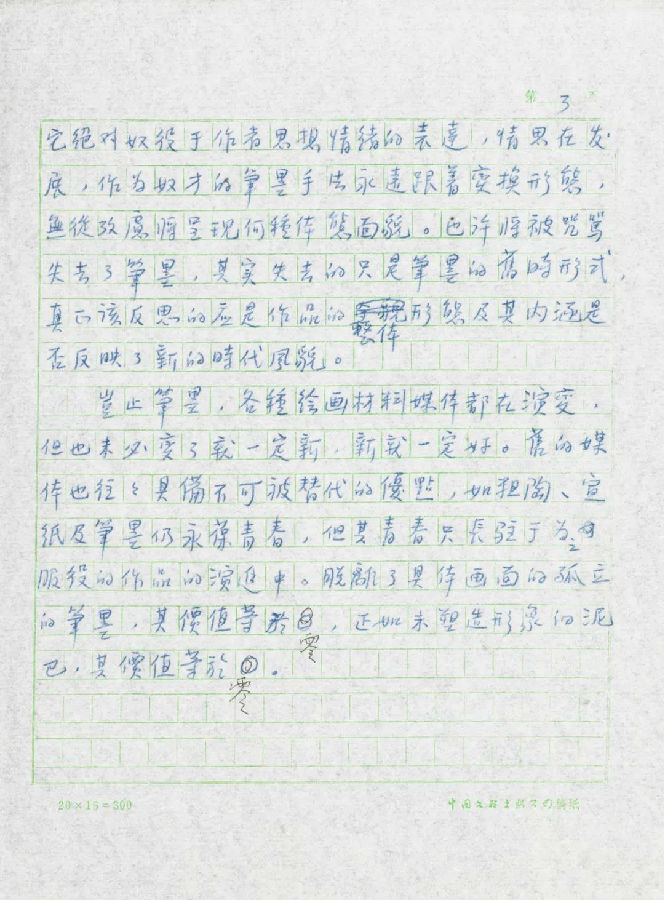 第 3
它絕对奴役于作者思想情緒的表達，情思在发
展，作为奴才的筆墨手法永遠跟着变换形態，
無從考慮將呈現何種体態面貌。也许将被咒罵
失去了筆墨，其实失去的只是筆墨的舊時形式，
真正该反思的应是作品的整体形態及其内涵是
否反映了新的時代風貌。
豈止筆墨，各種绘画材料媒体都在演变，
但也未必变了就一定新，新就一定好。舊的媒
体也往々具備不可被替代的優點，如粗陶、宣
紙及筆墨仍永葆青春，但其青春只長駐于为之
服役的作品的演進中。脫離了具体画面的孤立
的筆墨，其價值等於零，正如未塑造形象的泥
巴，其價值等於零。
20×15=300